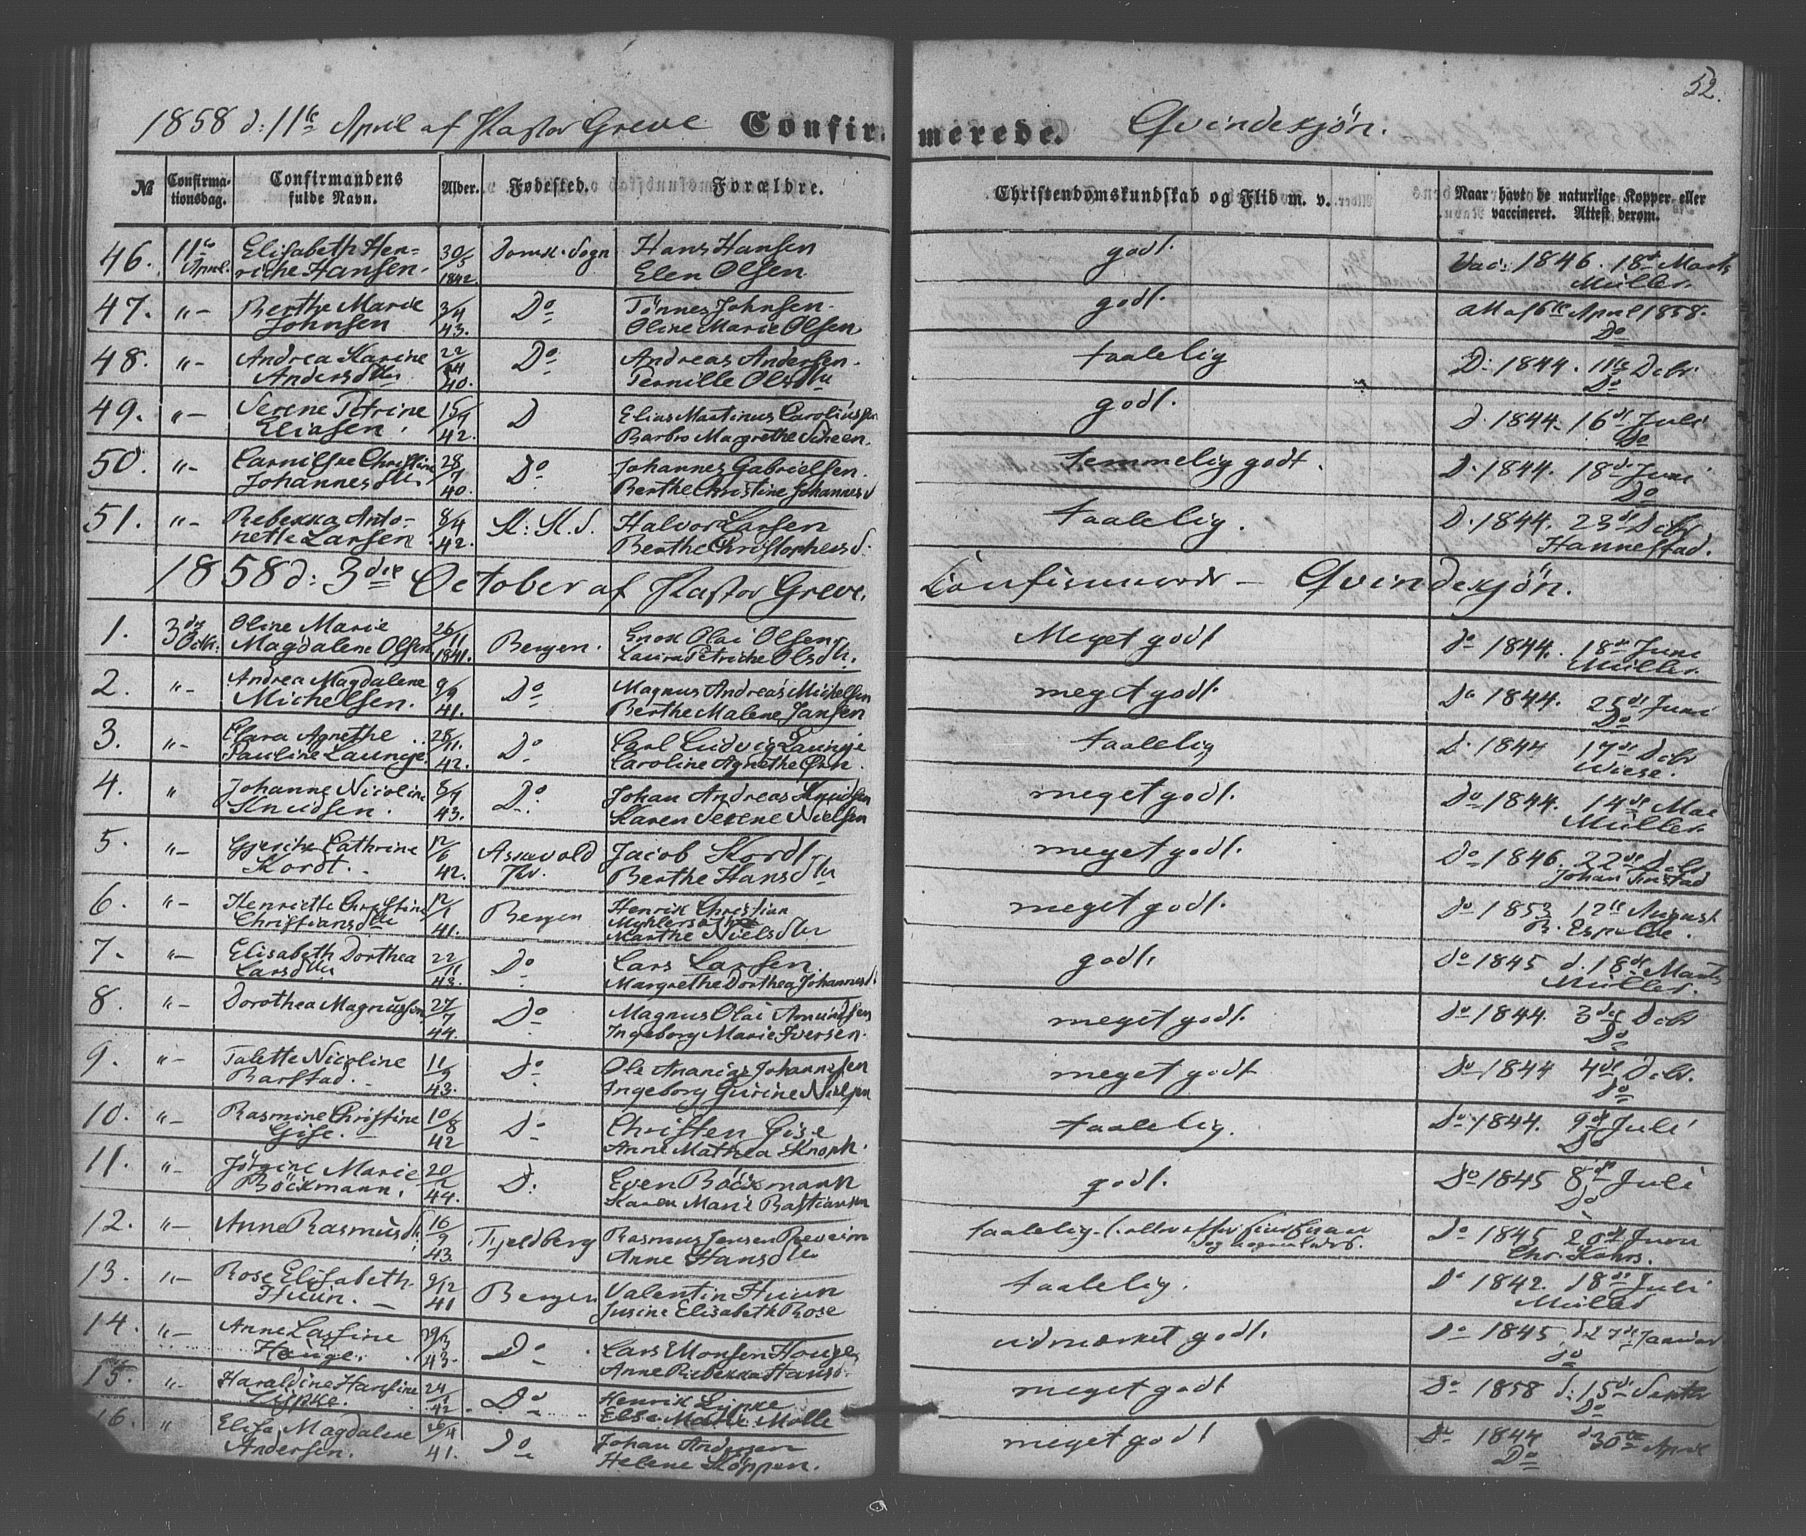 52.
1858 d: 11te April af Pastor Greve Confirmerede. Qvindekjøn.
№ Confirmationsdag. Confirmandens fulde Navn. Alder. Fødested. Forældre. Christendomskundskab og Flid m. v. Naar havt de naturlige Kopper eller vaccineret. Attest derom.
46. 11te April. Elisabeth Hen- 30/5 Domk. Sogn Hans Hansen godt. Vac: 1846. 18de Marts
riche Hansen. 1842. Elen Olsen Müller.
47. "- Berthe Marie 3/4 Do Tönnes Johnsen. godt. 6te April 1858.
Johnsen 43. Oline Marie Olsen Do
48. "- Andrea Karine 22/ Do Andreas Andersen. taalelig D: 1844. 11te Decbr
Andersdtr 40. Pernille Olsdtr Do
49. "- Serene Petrine 15/9 D Elias Martinus godt. D. 1844. 16de Juli
Eliasen. 42. Barbro Margrethe Do
50. "- Christine 28/7 Do Johannes Gabrielsen. temmelig godt. D. 1844. 18de Juni
Johannesdtr 40. Berthe Christine Johannesd Do
51. "- Rebekka Anto- 8/4 K: K. S. Halvor Larsen taalelig. D. 1844. 23de Decbr
nette Larsen 42. Berthe Christophersd. Hannestad.
1858 d: 3die October af Pastor Greve. Confirmerede - Qvindekjøn.
1. 3die Octr. Oline Marie 26/11 Bergen. Enok Olai Olsen Meget godt Do 1844. 18de Juni
Magdalene Olsen 1841. Laura Petriche Olsdtr. Müller.
2. "- Andrea Magdalene 9/9 Do Magnus Andreas Michelsen meget godt. Do 1844. 25de Juni
Michelsen. 41. Berthe Malene Jansen Do
3. "- Clara Agnethe 28/11. Do Carl Ludvig Launge taalelig D. 1844 17de Decbr
Pauline Launge 42. Caroline Agnethe Wiese.
4. " Johanne Nicoline 8/9 Do. Johan Andreas Knudsen meget godt. Do 1844. 14de Mai
Knudsen. 43. Karen Serene Nielsen Müller.
5. "- Cathrine 12/6 Askevold Jacob Kordt meget godt. Do 1846. 22de Decbr
Kordt. 42. Pr. Berthe Hansdtr Johan
6. "- Henriette Christine 12/1 Bergen Henrik Christian meget godt. Do 1853 12te August
Christiansdtr 41. Marthe Nielsdtr
7. "- Elisabeth Dorthea 22/11 Do Lars Larsen godt. Do 1845 d. 18de Marts
Larsdtr 43. Margrethe Dorthea Johannesd. Müller.
8. "- Dorothea Magnussen 27/7 Do Magnus Olai Amundsen meget godt. Do 1844 3die Decbr
44. Ingeborg Marie Iversen. Do
9. "- Talette Nicoline 11/9 Do Ole Ananias Johannesen meget godt Do 1844 4de Decbr.
Barstad. 43. Ingeborg Gurine Nielsen Do
10. "- Rasmine Christine 10/8 Do Christen Gise taalelig. Do 1844. 9de Juli
Gise. 42 Anne Mathea Knoph. Do
11. "- Jörgine Marie 20/ D. Even Böckmann godt. Do 1845 8de Juli
Böckmann. 44. Karen Marie Bastiansen Do
12. "- Anne Rasmusdtr 16/9 Fjeldberg Rasmus Jensen taalelig. Do 1845 20de Juni
43. Anne Hansdtr Chr. Kahrs.
13. "- Rose Elisabeth 9/12 Bergen Valentin Huun taalelig. Do 1842. 18de Juli
Huun. 41 Elisabeth Rose Müller
14. "- Anne Lassine 29/ Do Lars Monsen Houge udmærket godt. Do 1845 d 27de Januar
Houge. 43. Anne Rebekka Hansd. Do
15. "- Haraldine Hansine 24/ Do Henrik Lypke meget godt Do 1858 d: 15de Septbr
Lypke. 42 Else Marie Molle Do
16. " Elisa Magdalene 26/4 Do Johan Andersen meget godt Do 1844 30te April
Andersen. 41. Helene Köppen. Do